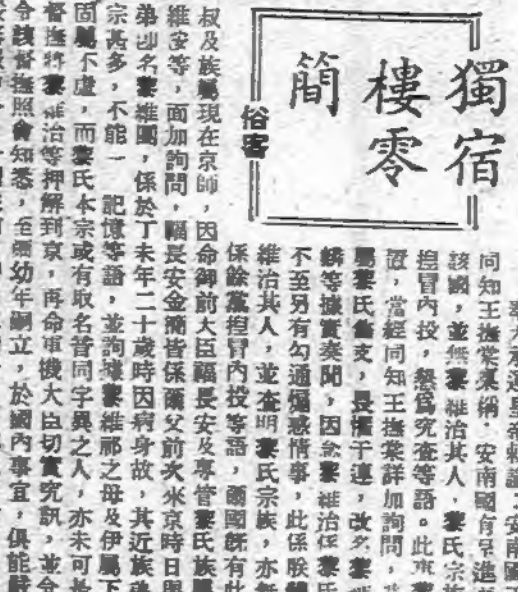 獨宿
樓零
簡
俗客
奉天承運皇帝敕諭：安南國
同知王撫棠稟稱，安南國呈進
該國，並無黎維治其人，黎氏宗族
捏冒內投，懇爲究查等語。此黎
置，當經同知王撫棠詳加詢問，
屬黎氏支，畏懼干連，改名黎
麟等據實奏聞，因念黎維治係黎氏
不至另有勾通煽惑情事，此係朕
維治其人，並查明黎氏宗族，亦無
係餘黨捏冒內投等語，爾國旣有此
叔及族屬現在京師，因命御前大臣福長安及專管黎氏族屬
維安等，面加詢問，福長安金簡皆係爾父前次來京時日與
弟卽名黎維圜，係於丁未年二十歲時因病身故，其近族
宗甚多，不能一　記憶等語，並詢據黎維祁之母及伊屬下
固屬不虛，而黎氏本宗或有取名音同字異之人，亦未可
督撫將黎維治等押解到京，再命軍機大臣切實究訊，並令
令該督撫照會知悉，至爾幼年嗣立，於國內事宜，俱能